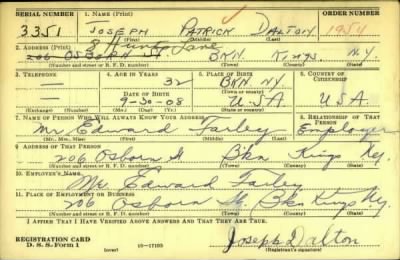 SERIAL NUMBER 1. NAME (Print) ORDER NUMBER
3351 JOSEPH PATRICK DALTON 1954
2. ADDRESS (Print)
Hunts Lane
206 OSBORN ST BKN KINGS N.Y
(Number and street or R. F. D. number) (Town) (County) (State)
3. TELEPHONE 4. AGE IN YEARS 5. PLACE OF BIRTH 6. COUNTRY OF CITIZENSHIP
— 32 BKN NY
DATE OF BIRTH
9-30-08 USA U.S.A.
(Exchange) (Number) (Mo.) (Day) (Yr.) (State or country)
7. NAME OF PERSON WHO WILL ALWAYS KNOW YOUR ADDRESS 8. RELATIONSHIP OF THAT PERSON
Mr Edward Farley Employer
(Mr., Mrs., Miss) (First) (Middle) (Last)
9. ADDRESS OF THAT PERSON
206 Osborn St Bkn Kings N.Y.
(Number and street or R. F. D. number) (Town) (County) (State)
10. EMPLOYER'S NAME
Mr Edward Farley
11. PLACE OF EMPLOYMENT OR BUSINESS
206 Osborn St, Bkn Kings N.Y.
(Number and street or R. F. D. number) (Town) (County) (State)
I AFFIRM THAT I HAVE VERIFIED ABOVE ANSWERS AND THAT THEY ARE TRUE.
REGISTRATION CARD
D. S. S. Form 1 (over) 16-17105 Joseph Dalton
(Registrant's signature)